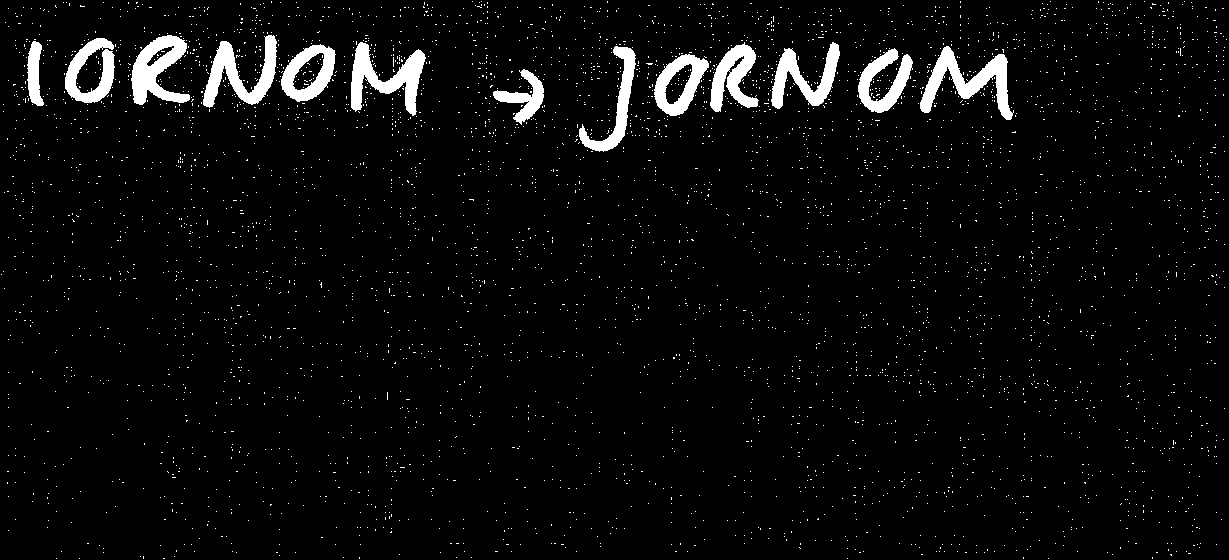 IORNOM → JORNOM